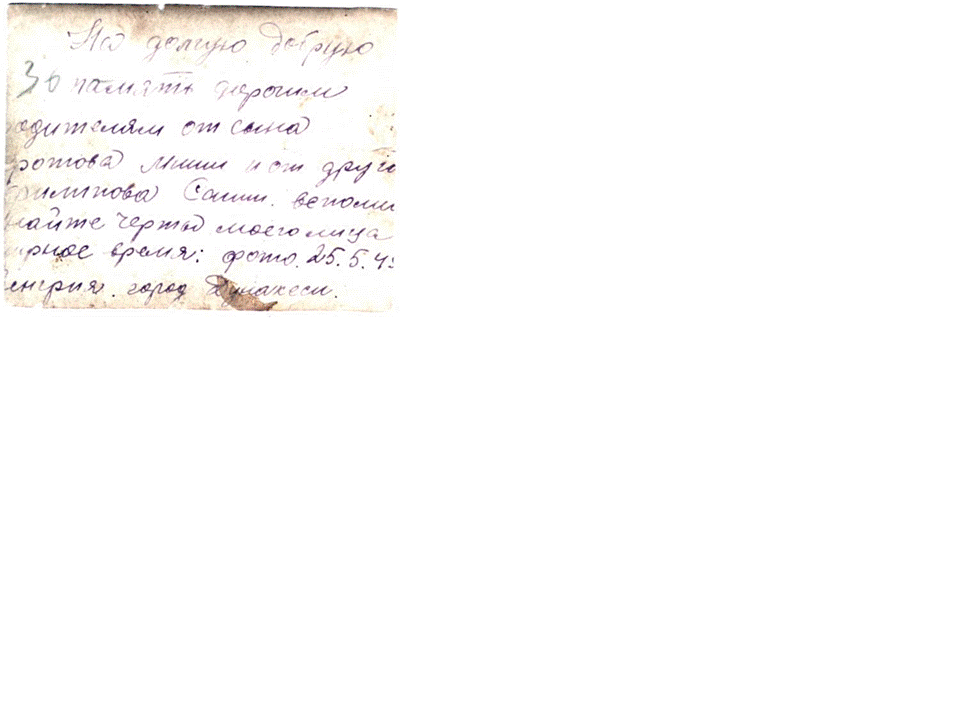 На долгую добрую
36 память дорогим
родителям от сына
ротова Миши и от друга
Филиппова Саши. вспоми
найте черты моего лица
мирное время: фото. 25.5.45
Венгрия. город Дунакеси.